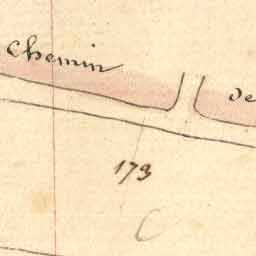 Chemin
de
173
C